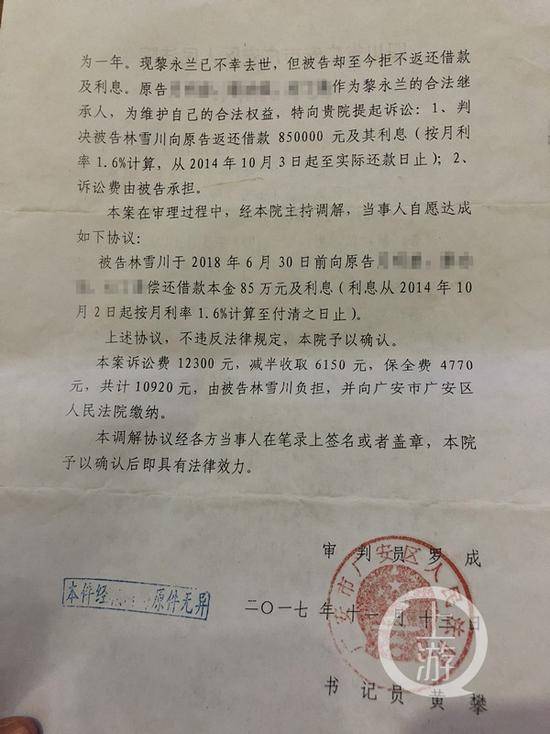 为一年。现黎永兰已不幸去世，但被告却至今拒不返还借款
及利息。原告
作为黎永兰的合法继
承人，为维护自己的合法权益，特向贵院提起诉讼：1、判
决被告林雪川向原告返还借款 850000 元及其利息（按月利
率 1.6%计算，从 2014 年 10 月 3 日起至实际还款日止）；2、
诉讼费由被告承担。
本案在审理过程中，经本院主持调解，当事人自愿达成
如下协议：
被告林雪川于 2018 年 6 月 30 日前向原告
偿还借款本金 85 万元及利息（利息从 2014 年 10
月 2 日起按月利率 1.6%计算至付清之日止）。
上述协议，不违反法律规定，本院予以确认。
本案诉讼费 12300 元，减半收取 6150 元，保全费 4770
元，共计 10920 元，由被告林雪川负担，并向广安市广安区
人民法院缴纳。
本调解协议经各方当事人在笔录上签名或者盖章，本院
予以确认后即具有法律效力。
审 判 员 罗 成
广安市广安区人民法院
本件经
原件无异
二〇一七年十一月十三日
上游
书 记 员 黄 攀